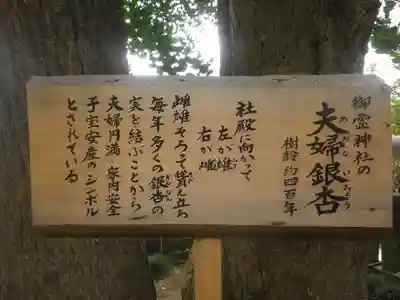 御霊神社の
夫婦銀杏
めおといちょう
樹齢 約四百年
社殿に向かって
左が雄
右が雌
雌雄そろって聳え立ち
毎年多くの銀杏の
ぎんなん
実を結ぶことから
夫婦円満 家内安全
子宝安産のシンボル
とされている